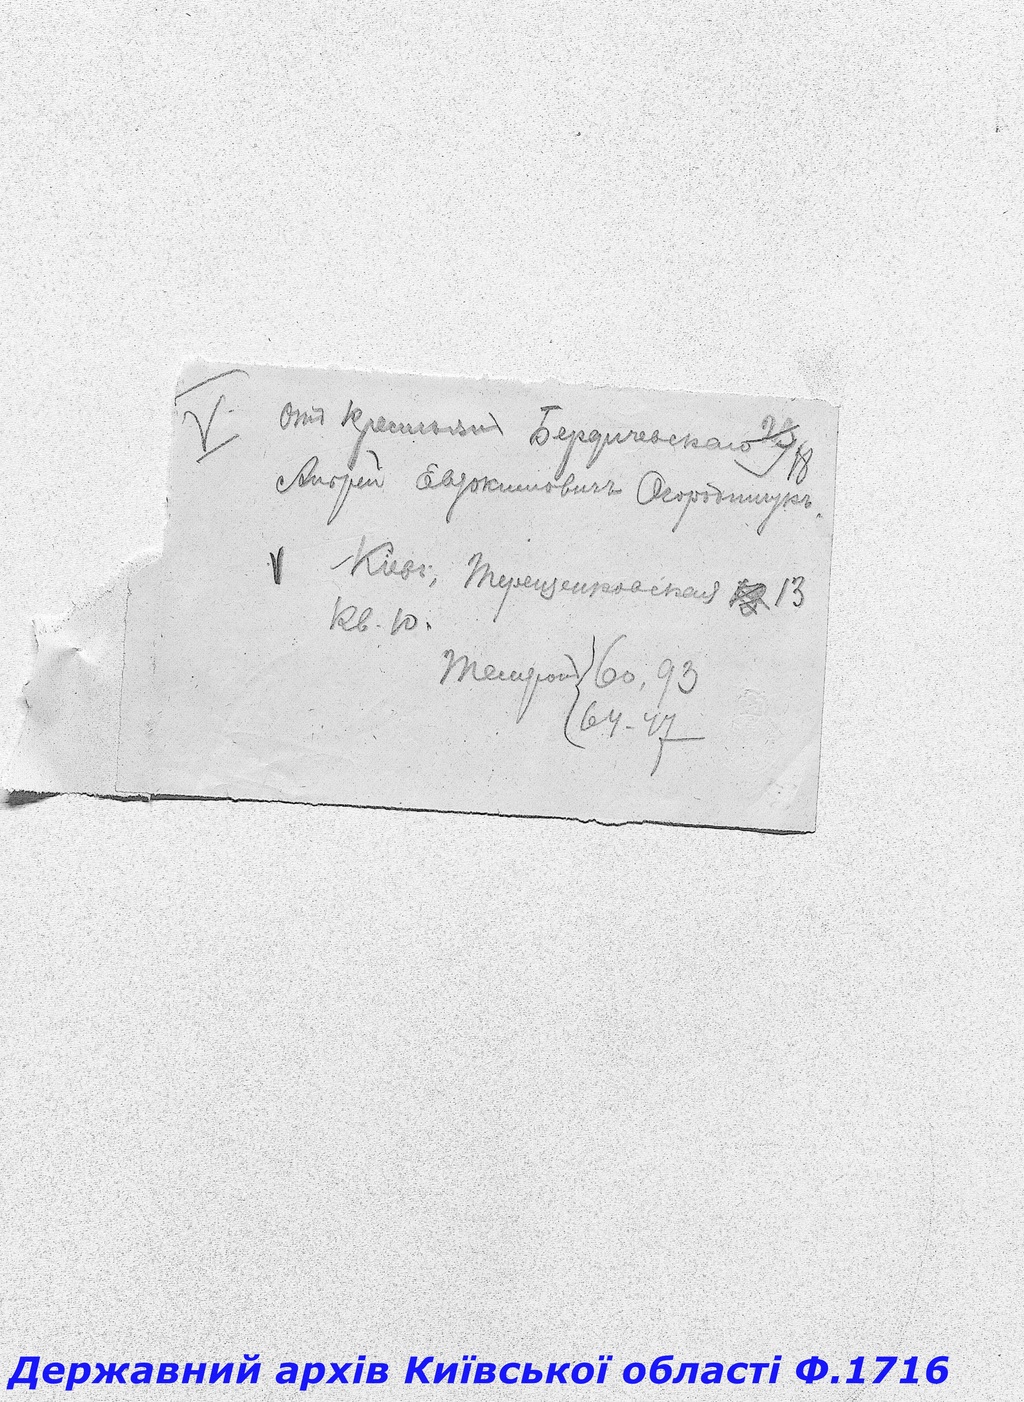 V Отъ Крестьянъ Бердичевскаго
Андрей Евдокимовичъ Огородничукъ.
V Кіевъ, Терещенковская 13
кв. 10.
Телефон { 60, 93
64-47
Державний архів Київської області Ф.1716